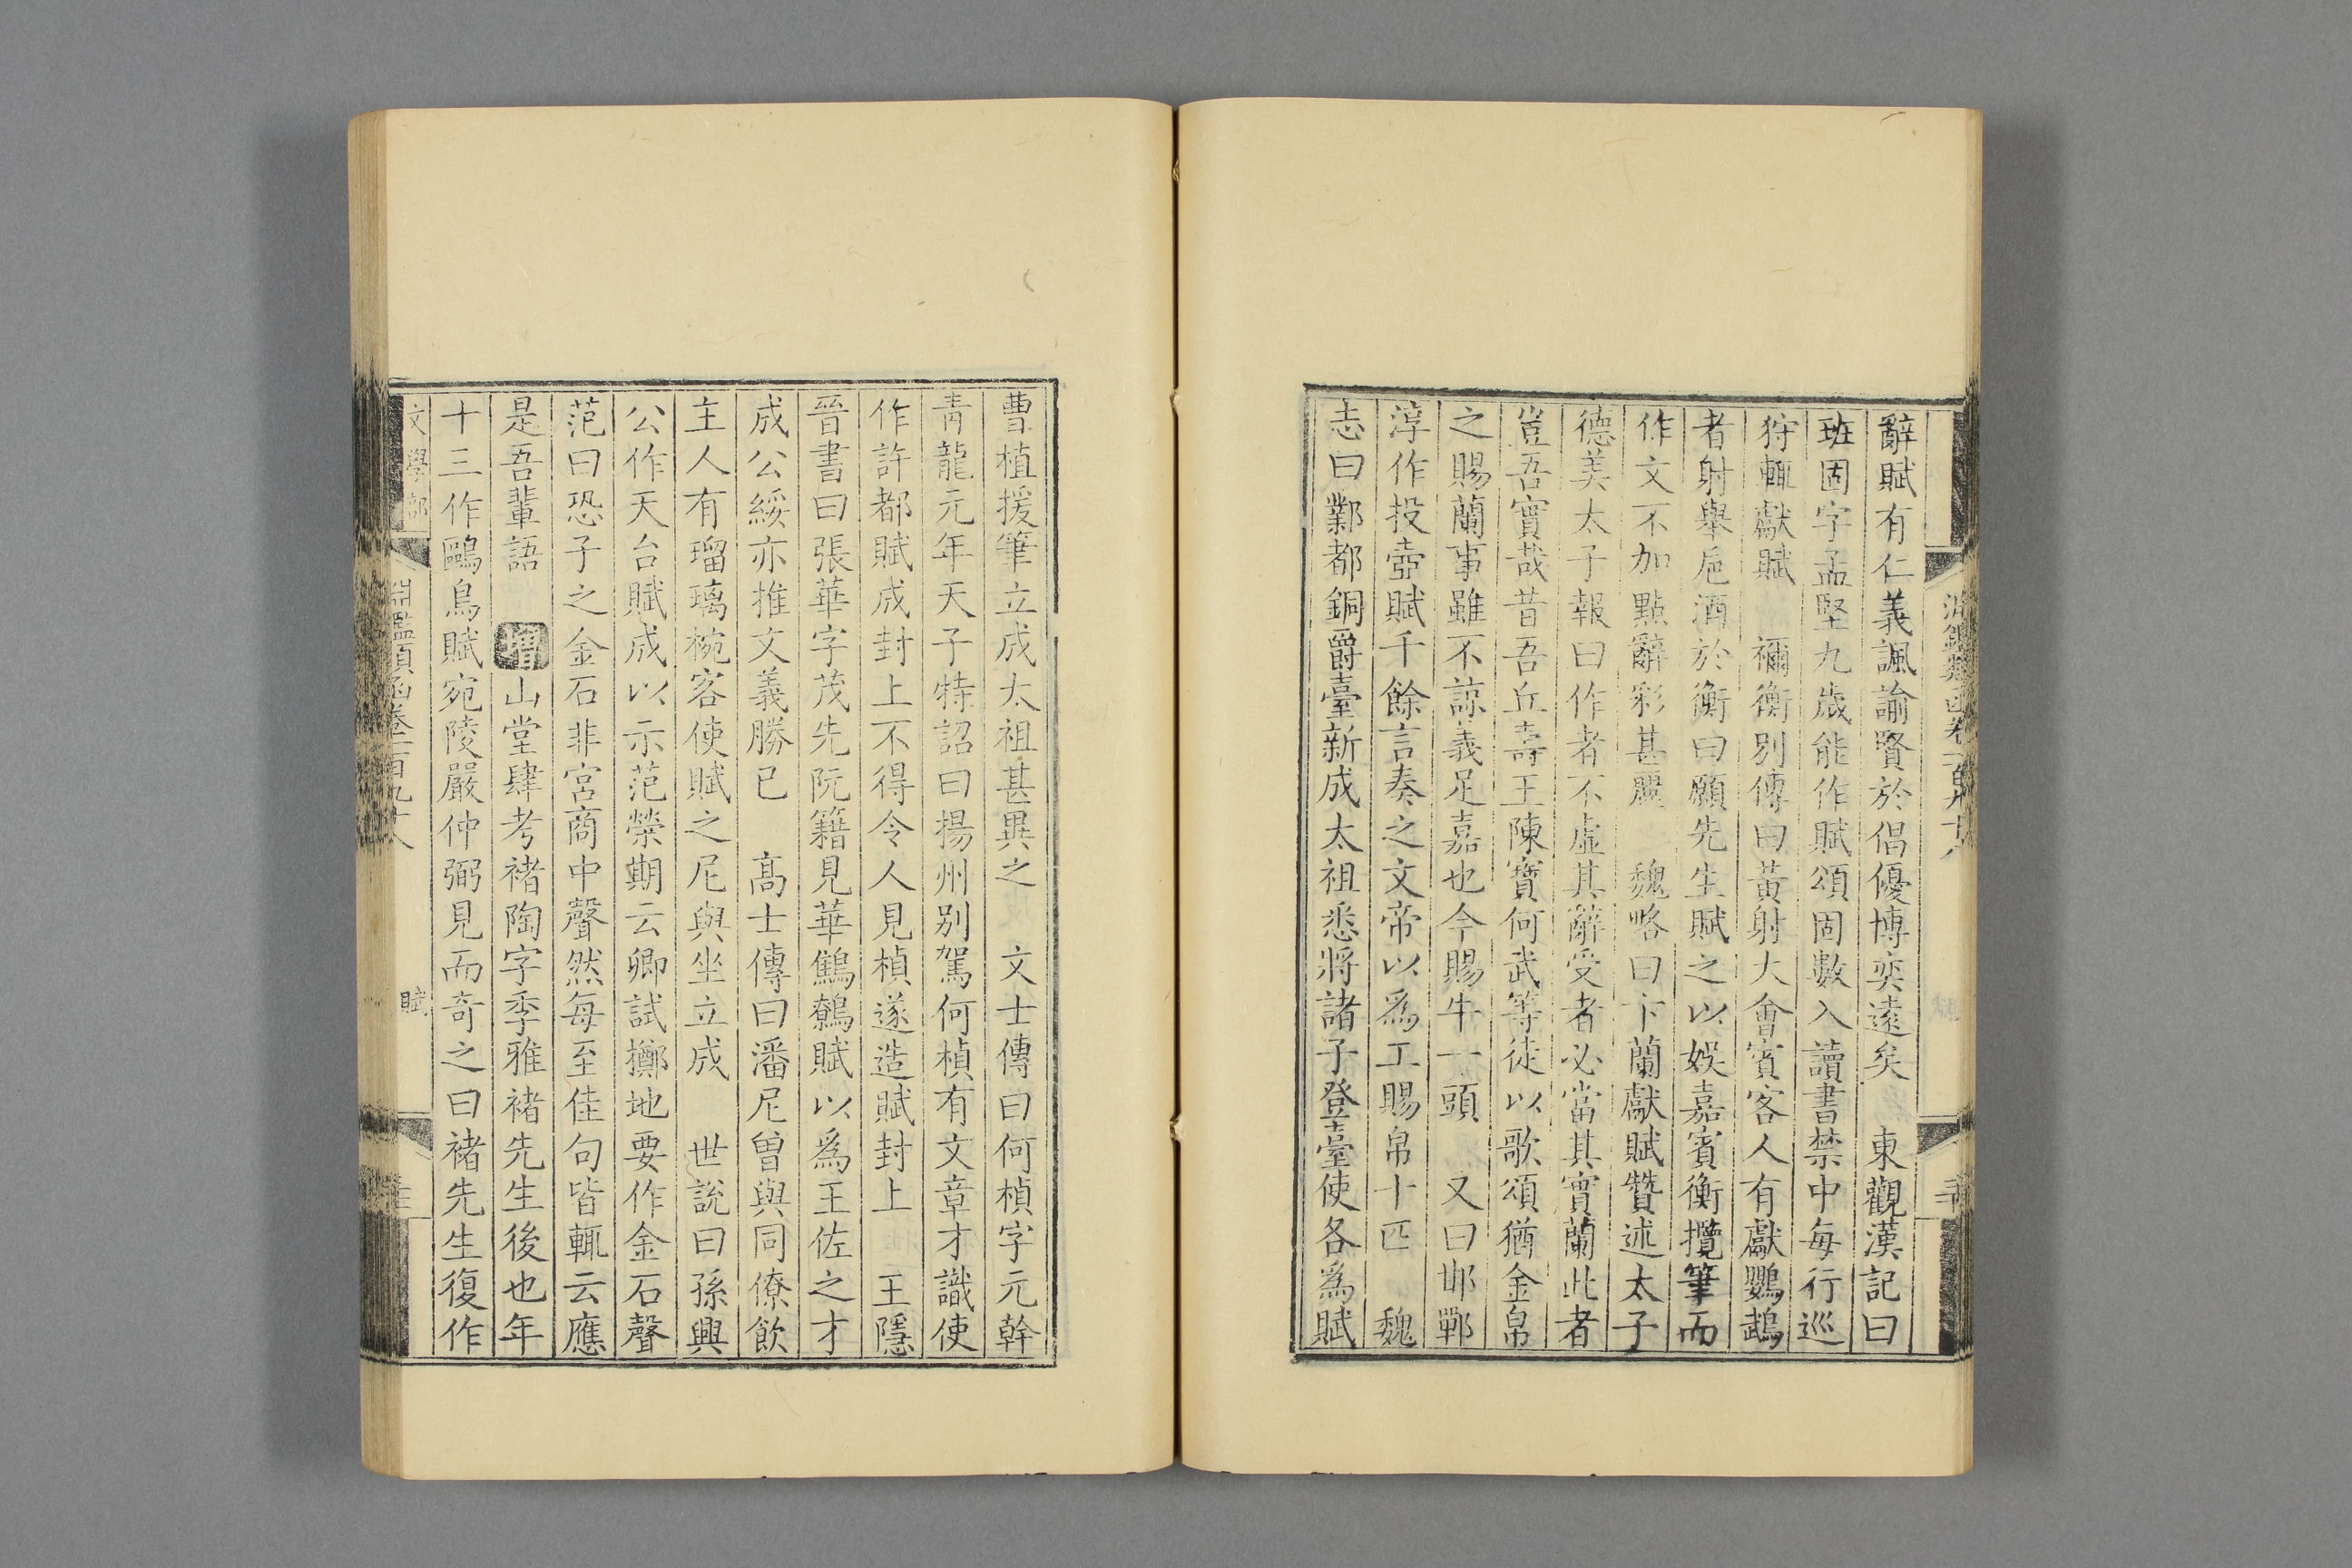 辭賦有仁義諷諭賢於倡優博奕遠矣 東觀漢記曰
班固字孟堅九歲能作賦頌固數入讀書禁中每行巡
狩輒獻賦 禰衡別傳曰黃射大會賓客人有獻鸚鵡
者射舉巵酒於衡曰願先生賦之以娛嘉賓衡攬筆而
作文不加點辭彩甚麗 魏略曰卞蘭獻賦贊述太子
德美太子報曰作者不虛其辭受者必當其實蘭此者
豈吾實哉昔吾丘壽王陳寶何武等徒以歌頌猶金帛
之賜蘭事雖不諒義足嘉也今賜牛一頭 又曰邯鄲
淳作投壺賦千餘言奏之文帝以爲工賜帛十匹 魏
志曰鄴都銅爵臺新成太祖悉將諸子登臺使各爲賦
曹植援筆立成太祖甚異之 文士傳曰何楨字元幹
青龍元年天子特詔曰揚州別駕何楨有文章才識使
作許都賦成封上不得令人見楨遂造賦封上 王隱
晉書曰張華字茂先阮籍見華鷦鷯賦以爲王佐之才
成公綏亦推文義勝已 高士傳曰潘尼曾與同僚飲
主人有瑠璃椀客使賦之尼與坐立成 世說曰孫興
公作天台賦成以示范榮期云卿試擲地要作金石聲
范曰恐子之金石非宮商中聲然每至佳句皆輒云應
是吾輩語 增山堂肆考褚陶字季雅褚先生後也年
十三作鷗鳥賦宛陵嚴仲弼見而奇之曰褚先生復作
文學部 淵鑑類函卷一百九十八 賦